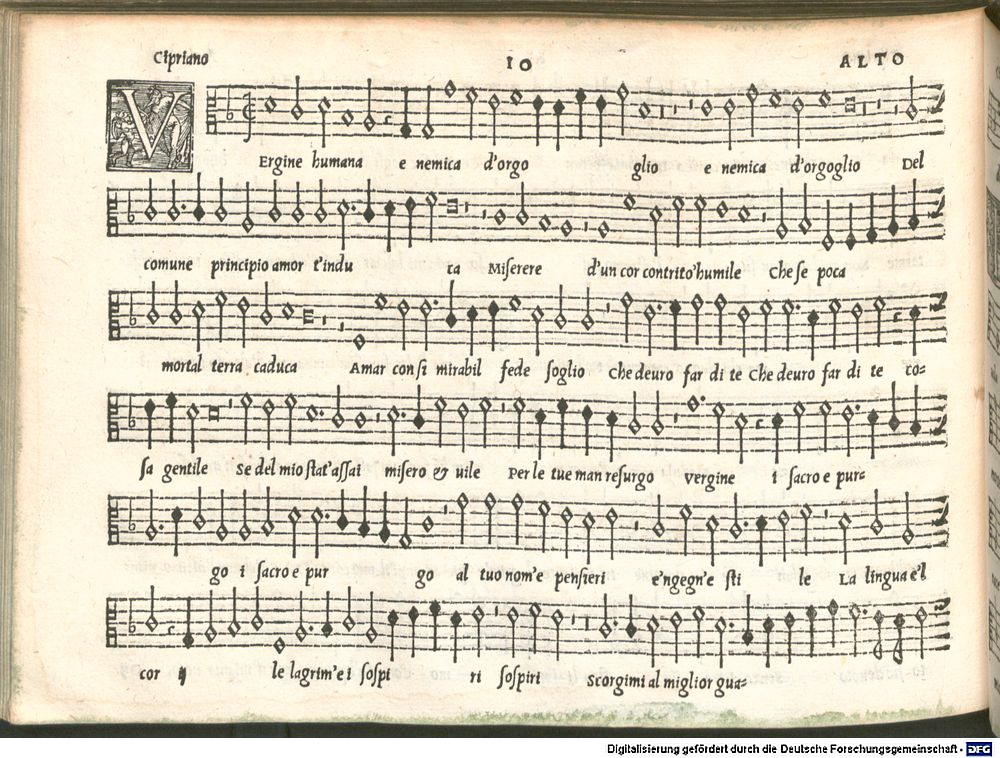 Cipriano 10 ALTO
VErgine humana e nemica d'orgo glio e nemica d'orgoglio Del
comune principio amor t'indu ca Miserere d'un cor contrito'humile Che se poca
mortal terra caduca Amar con si mirabil fede soglio Che deuro far di te Che deuro far di te co-
sa gentile Se del mio stat'assai misero & uile Per le tue man resurgo vergine i sacro e pur-
go i sacro e pur go al tuo nom'e pensieri e'ngegn'e sti le La lingua e'l
cor ij le lagrim'e i sospi ri sospiri Scorgimi al miglior gua-
Digitalisierung gefördert durch die Deutsche Forschungsgemeinschaft - DFG